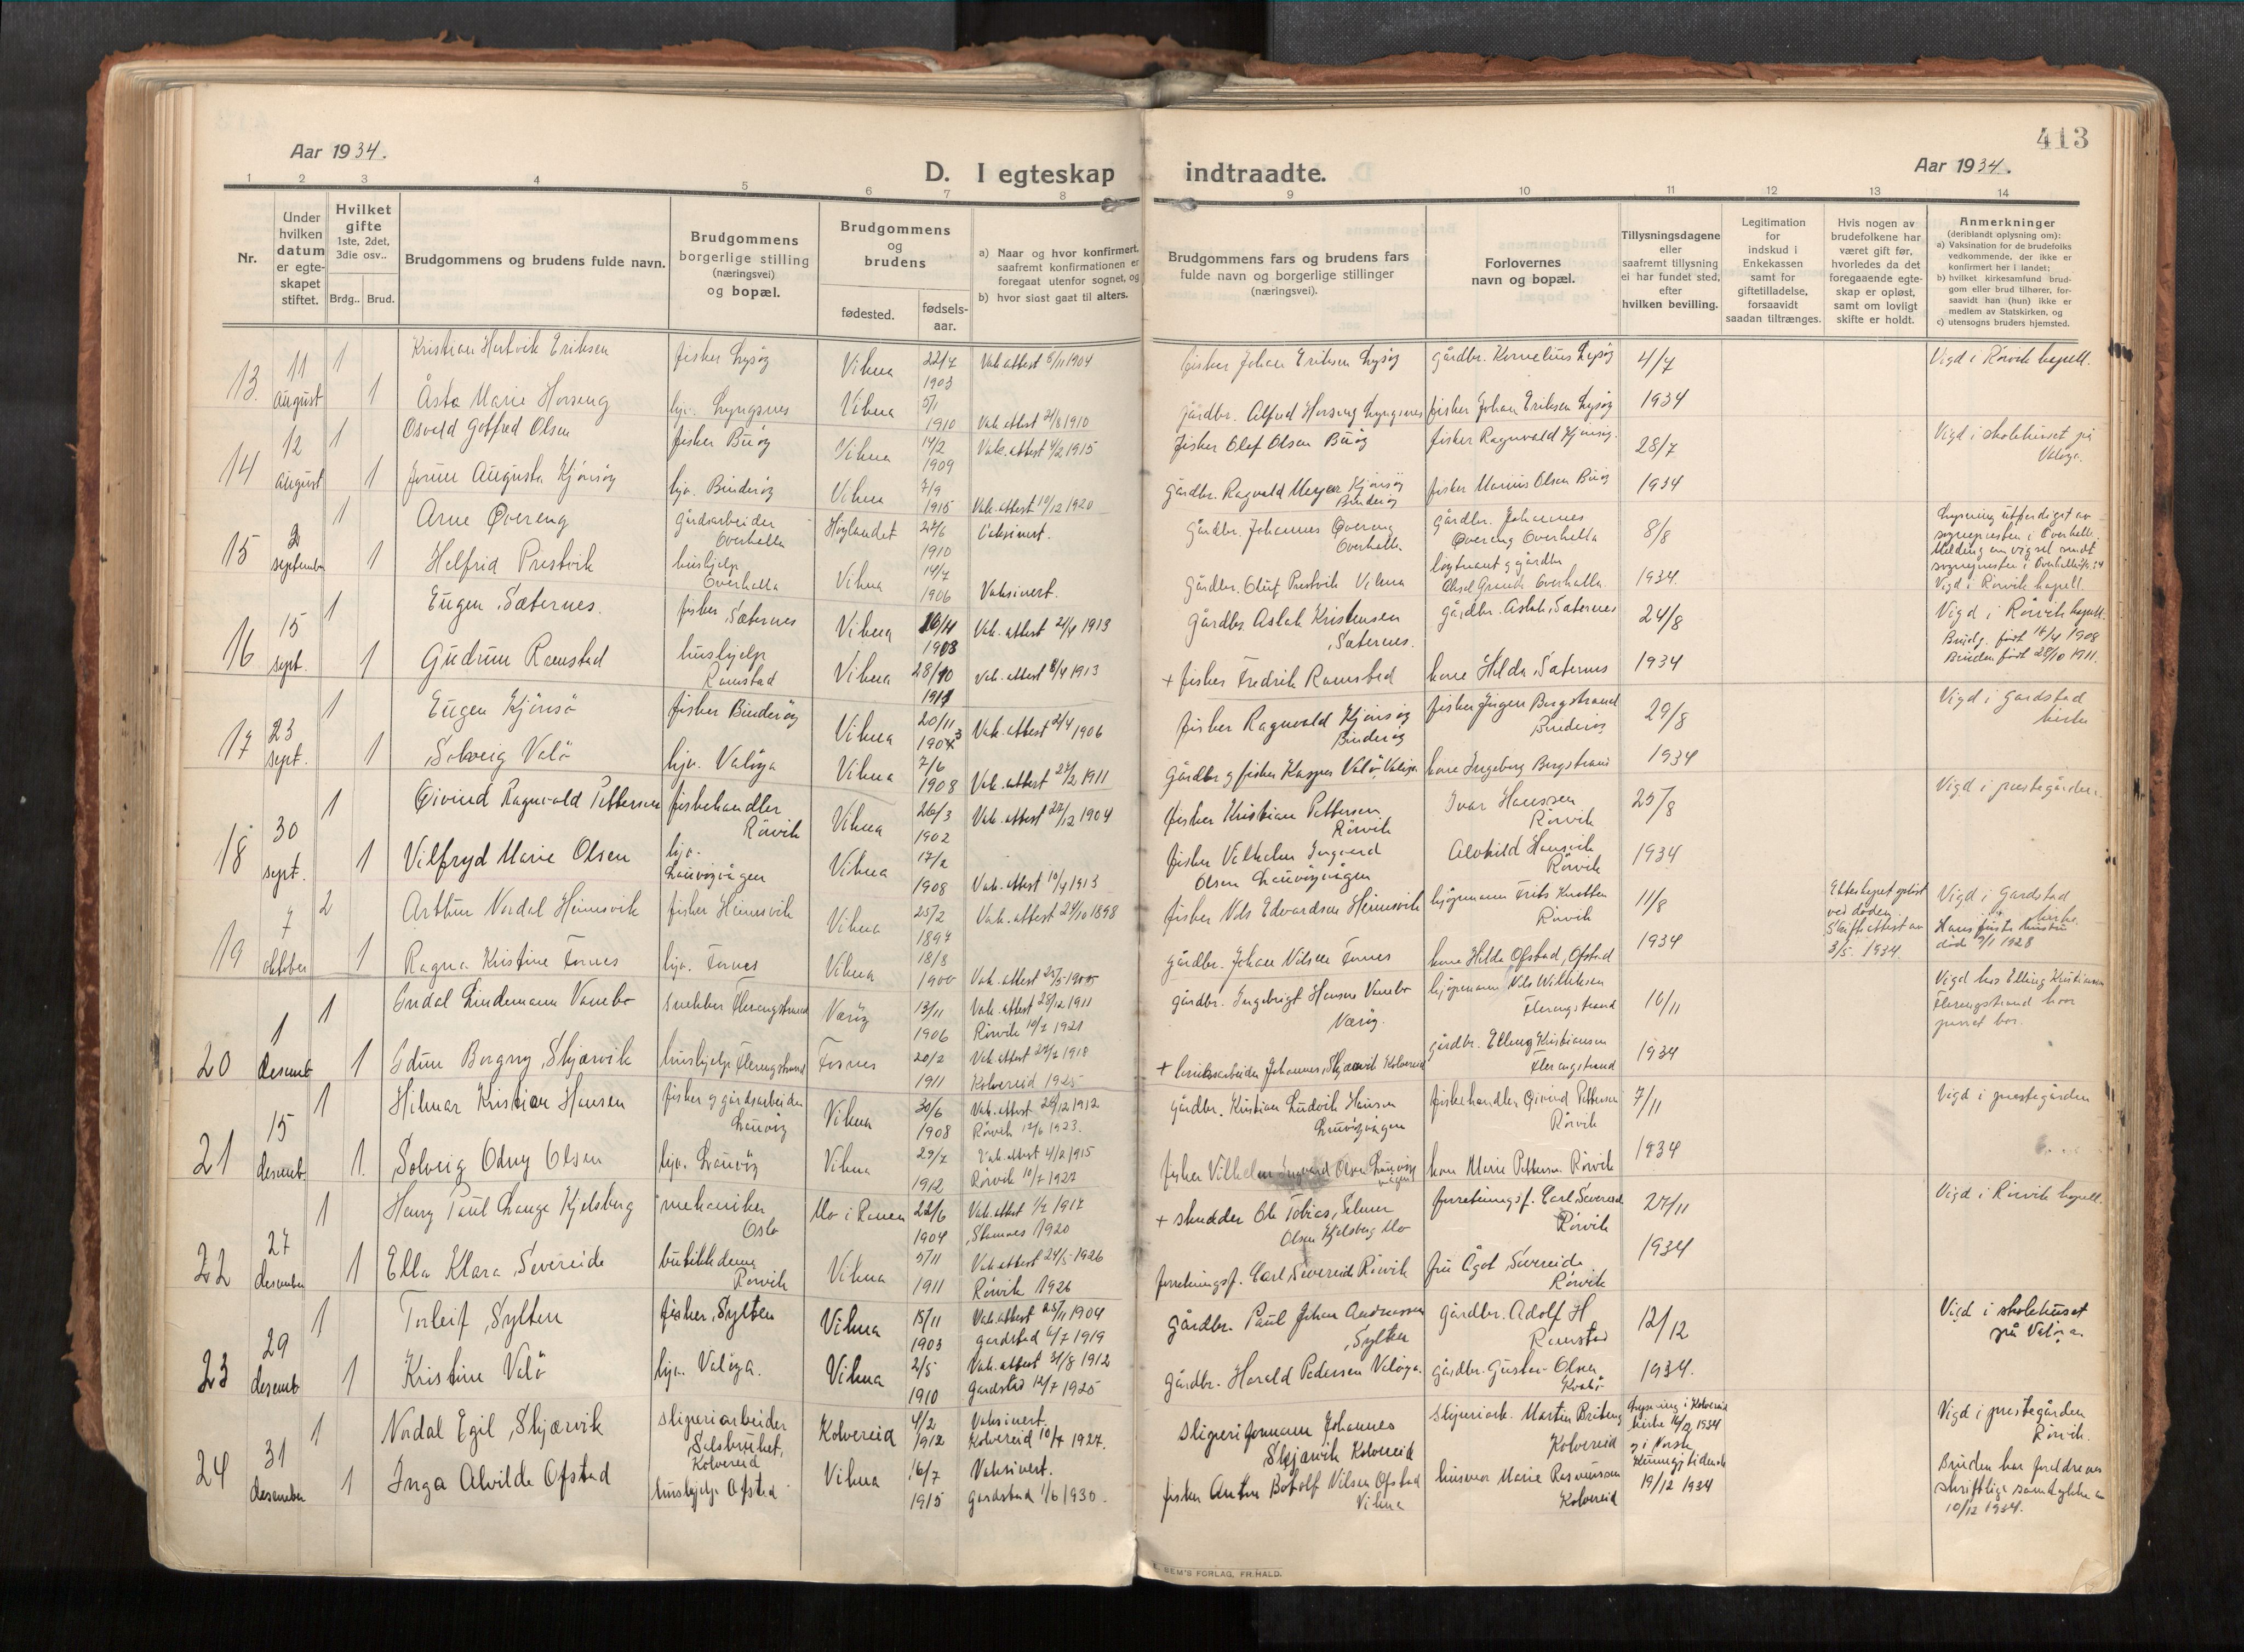 413
Aar 1934.
Aar 1934.
D. I egteskap indtraadte.
1 2 3 4 5 6 7 8 9 10 11 12 13 14
Nr.
Under hvilken datum er egteskapet stiftet.
Hvilket gifte
1ste, 2det, 3die osv..
Brdg.. Brud.
Brudgommens og brudens fulde navn.
Brudgommens borgerlige stilling (næringsvei) og bopæl.
Brudgommens og brudens
fødested.
fødsels-aar.
a) Naar og hvor konfirmert, saafremt konfirmationen er foregaat utenfor sognet, og
b) hvor sidst gaat til alters.
Brudgommens fars og brudens fars fulde navn og borgerlige stillinger (næringsvei).
Forlovernes navn og bopæl.
Tillysningsdagene eller saafremt tillysning ei har fundet sted, efter hvilken bevilling.
Legitimation for indskud i Enkekassen samt for giftetilladelse, forsaavidt saadan tiltrænges.
Hvis nogen av brudefolkene har været gift før, hvorledes da det foregaaende egteskap er opløst, samt om lovligt skifte er holdt.
Anmerkninger
(deriblandt oplysning om):
a) Vaksination for de brudefolks vedkommende, der ikke er konfirmert her i landet;
b) hvilket kirkesamfund brudgom eller brud tilhører, forsaavidt han (hun) ikke er medlem av Statskirken, og
c) utensogns bruders hjemsted.
13. 11 august 1 Kristian Hartvik Eriksen fisker Lysøy Vikna 22/7 1903 Vak. attest 5/11 1904 fisker Johan Eriksen Lysøy gårdbr. Kornelius Lysøy 4/7 Vigd i Rörvik kapell.
1 Åsta Marie Horseng hjv. Lyngsnes Vikna 5/1 1910 Vak. attest 21/8 1910 gårdbr. Alfred Horseng Lyngsnes fisker Johan Eriksen Lysøy 1934
14 12 august 1 Osvald Gotfred Olsen fisker Buöy Vikna 14/2 1909 Vak. attest 4/2 1915 fisker Olaf Olsen Buöy fisker Ragnvald Kjönsöy. 28/7 Vigd i skolehuset på Valöya.
1 Jorun Augusta Kjönsöy hjv. Binderöy Vikna 7/9 1915 Vak. attest 10/12 1920 gårdbr. Ragvald Meyer Kjönsöy Binderöy fisker Marius Olsen Buöy 1934
15 2 september 1 Arne Øvereng gårdsarbeider Overhalla Høylandet 27/6 1910 Vaksinert. gårdbr. Johannes Øvereng Overhalla gårdbr. Johannes Øvereng Overhalla 8/8 Lysning utferdiget av sognepresten i Overhalla. Melding om vigsel sendt sognepresten i Overhalla
1 Helfrid Prestvik hushjelp Overhalla Vikna 14/7 1906 Vaksinert. gårdbr. Oluf Prestvik Vikna løytnant og gårdbr. Overhalla 1934. Vigd i Rörvik kapell
16 15 sept. 1 Eugen Sæternes. fisker Sæternes Vikna 16/4 1908 Vak. attest 2/4 1913 gårdbr. Aslak Kristensen Sæternes. gårdbr. Aslak Sæternes 24/8 Vigd i Rörvik kapell. Brudg. født 16/4 1908 Bruden født 28/10 1911.
1 Gudrun Ramstad hushjelp Ramstad Vikna 28/10 1911 Vak. attest 8/4 1913 + fisker Fredrik Ramstad kone Hilda Sæternes 1934
17 23 sept. 1 Eugen Kjönsö fisker Binderöy Vikna 20/11 1903 Vak. attest 2/4 1906 fisker Ragnvald Kjönsöy Binderöy fisker Jörgen Bergstrand Binderöy 29/8 Vigd i Gardstad kirke
1 Solveig Valö hjv. Valöya Vikna 7/6 1908 Vak. attest 27/2 1911 gårdbr. og fisker Kasper Valö, Valöya kone Ingeborg Bergstrand 1934
18 30 sept. 1 Øivind Ragnvald Pettersen fiskehandler Rörvik Vikna 26/3 1902 Vak. attest 27/12 1904 fisker Kristian Pettersen Rörvik Ivar Hanssen Rörvik 25/8 Vigd i prestegården.
1 Vilfryd Marie Olsen hjv. Lauvöyvågen Vikna 17/2 1908 Vak. attest 10/4 1913 fisker Vilhelm Ingvard Olsen Lauvöyvågen Alvhild Hansvik Rörvik 1934
19 7 oktober 2 Arthur Nordal Heimsvik fisker Heimsvik Vikna 25/2 1897 Vak. attest 24/10 1898 fisker Nils Edvardsen Heimsvik kjöpmann Frits Knotten Rörvik 11/8 Ekteskapet oplöst ved döden. Skifteattest av 3/5. 1934. Vigd i Gardstad kirke. Hans første hustru död 9/1 1928
1 Ragna Kristine Fornes hjv. Fornes Vikna 18/8 1900 Vak. attest 25/5 1905 gårdbr. Johan Nilsen Fornes kone Hilda Ofstad, Ofstad 1934
20 1 desemb 1 Lindemann Vambo snekker Flerengstrand Næröy 13/11 1906 Vak. attest 28/12 1911 Rörvik 10/7 1921 gårdbr. Ingebrigt Hansen Vambo Næröy. kjöpmann Nils Wilhelmsen Flerengstrand 10/11 Vigd hos Elling Kristiansen Flerengstrand hvor paret bor.
1 Edun Borgny Skjærvik hushjelp Flerengstrand Fosnes 20/2 1911 Vak attest 27/7 1918 Kolvereid 1925 + bruksarbeider Johannes Skjærvik Kolvereid gårdbr. Elling Kristiansen Flerengstrand 1934
21 15 desemb 1 Hilmar Kristian Hansen fisker og gårdsarbeider Lauvöy Vikna 30/6 1908 Vak. attest 28/12 1912 Rörvik 17/6 1923. gårdbr. Kristian Ludvik Hansen Lauvöyvågen fiskehandler Øivind Pettersen Rörvik 7/11 Vigd i prestegården
1. Solveig Odny Olsen hjv. Lauvöy Vikna 29/7 1912 Vak. attest 4/2 1915 Rörvik 10/7 1927 fisker Vilhelm Ingvard Olsen Lauvöyvågen kone Marie Pettersen Rörvik 1934
22 27 desember 1 Henry Paul Lange Kjelsberg mekaniker Oslo Mo i Ranen 22/6 1904 Vak. attest 1/7 1917 Stamnes 1920 + skredder Ole Tobias Selmer Olsen Kjelsberg Mo forretningsf. Carl Severeide Rörvik 27/11 Vigd i Rörvik kapell.
1 Ella Klara Severeide butikkdame Rörvik Vikna 5/11 1911 Vak attest 24/5 1926 Rörvik 1926 forretningsf. Carl Severeide Rörvik fru Ågot Severeide Rörvik 1934
23 29 desemb 1 Torleif Sylten fisker Sylten Vikna 15/11 1903 Vak. attest 25/11 1904 Gardstad 6/7 1919 gårdbr. Paul Johan Andreassen Sylten gårdbr. Adolf H Ramstad 12/12 Vigd i skolehuset på Valöya.
1 Kristine Valö hjv. Valöya. Vikna 2/5 1910 Vak. attest 31/8 1912 Gardstad 12/7 1925 gårdbr. Harald Pedersen Valöya. gårdbr. Gustav Olsen Kvalö 1934.
24 31 desember 1 Nordal Egil Skjærvik sliperiarbeider Salsbruket, Kolvereid Kolvereid 4/2 1912 Vaksinert. Kolvereid 10/7 1927. sliperiformann Johannes Skjærvik Kolvereid sliperiarb. Martin Kolvereid Lysning i Kolvereid kirke 16/12 1934 og i Norsk Kunngj.tidende 19/12 1934 Vigd i prestegården Rörvik.
1 Inga Alvilde Ofstad hushjelp Ofstad Vikna 16/7 1915 Vaksinert. Gardstad 1/6 1930. fisker Anton Botolf Nilsen Ofstad Vikna husmor Marie Rasmussen Kolvereid Bruden har foreldrenes skriftlige samtykke av 10/12 1934.
SEM'S FORLAG, FR.HALD.